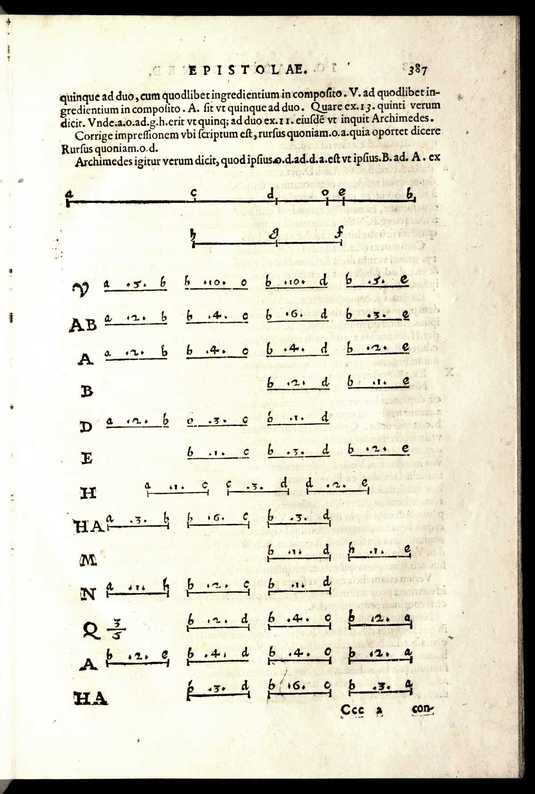 EPISTOLAE. 387
quinque ad duo, cum quodlibet ingredientium in composito. V. ad quodlibet in-
gredientium in composito. A. sit vt quinque ad duo. Quare ex .13. quinti verum
dicit. Vnde .a.o. ad .g.h. erit vt quinq; ad duo ex .11. eiusdẽ vt inquit Archimedes.
Corrige impressionem vbi scriptum est, rursus quoniam .o.a. quia oportet dicere
Rursus quoniam .o.d.
Archimedes igitur verum dicit, quod ipsius .o.d. ad .d.a. est vt ipsius .B. ad. A. ex
a c d o e b
h g f
V a .5. b b .10. o b .10. d b .5. e
AB a .2. b b .4. c b .6. d b .3. e
A a .2. b b .4. c b .4. d b .2. e
B b .2. d b .1. e
D a .2. b o .3. c o .1. d
E b .1. c b .3. d b .2. e
H a .1. c c .3. d d .2. e
HA a .3. b b .6. c b .3. d
M b .1. d h .1. e
N a .1. h b .2. c b .1. d
Q 3/5 b .2. d b .4. o b .2. a
A b .2. e b .4. d b .4. o b .2. a
HA b .3. d b .6. o b .3. a
Ccc 2 con-